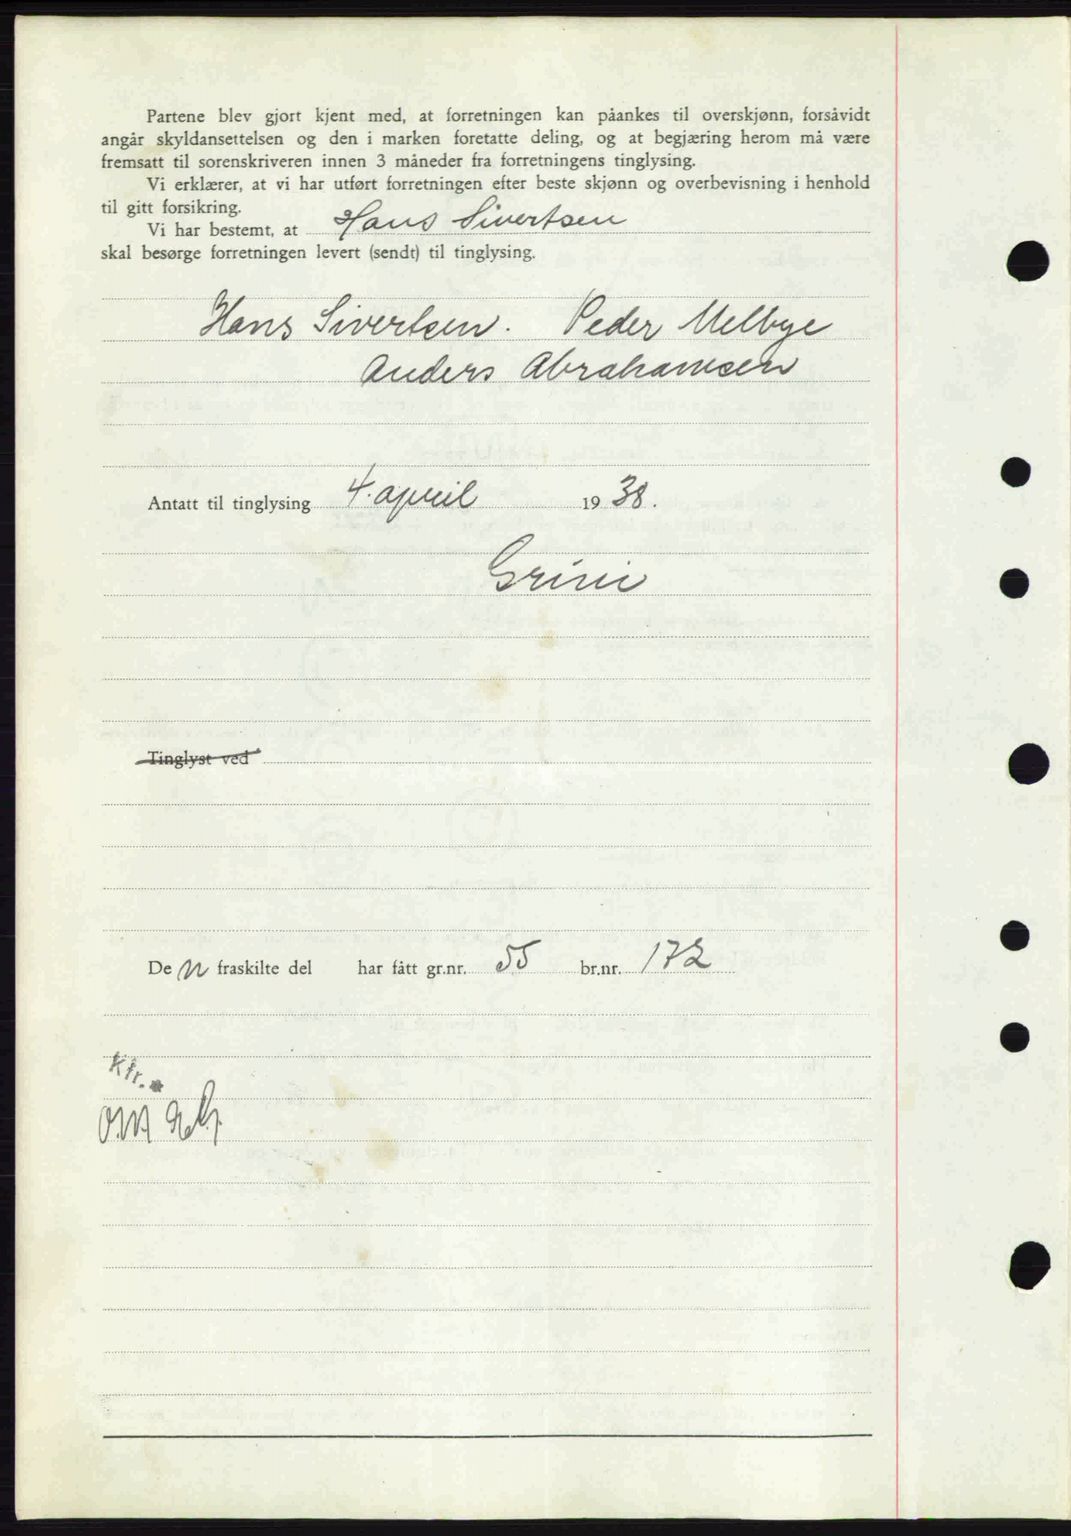 Partene blev gjort kjent med, at forretningen kan påankes til overskjønn, forsåvidt
angår skyldansettelsen og den i marken foretatte deling, og at begjæring herom må være
fremsatt til sorenskriveren innen 3 måneder fra forretningens tinglysing.
Vi erklærer, at vi har utført forretningen efter beste skjønn og overbevisning i henhold
til gitt forsikring.
Vi har bestemt, at Hans Sivertsen
skal besørge forretningen levert (sendt) til tinglysing.
Hans Sivertsen. Peder Melbye
Anders Abrahamsen
Antatt til tinglysing 4. april 1938.
Grini
Tinglyst ved
Den fraskilte del har fått gr.nr. 55 br.nr. 172
Kfr.